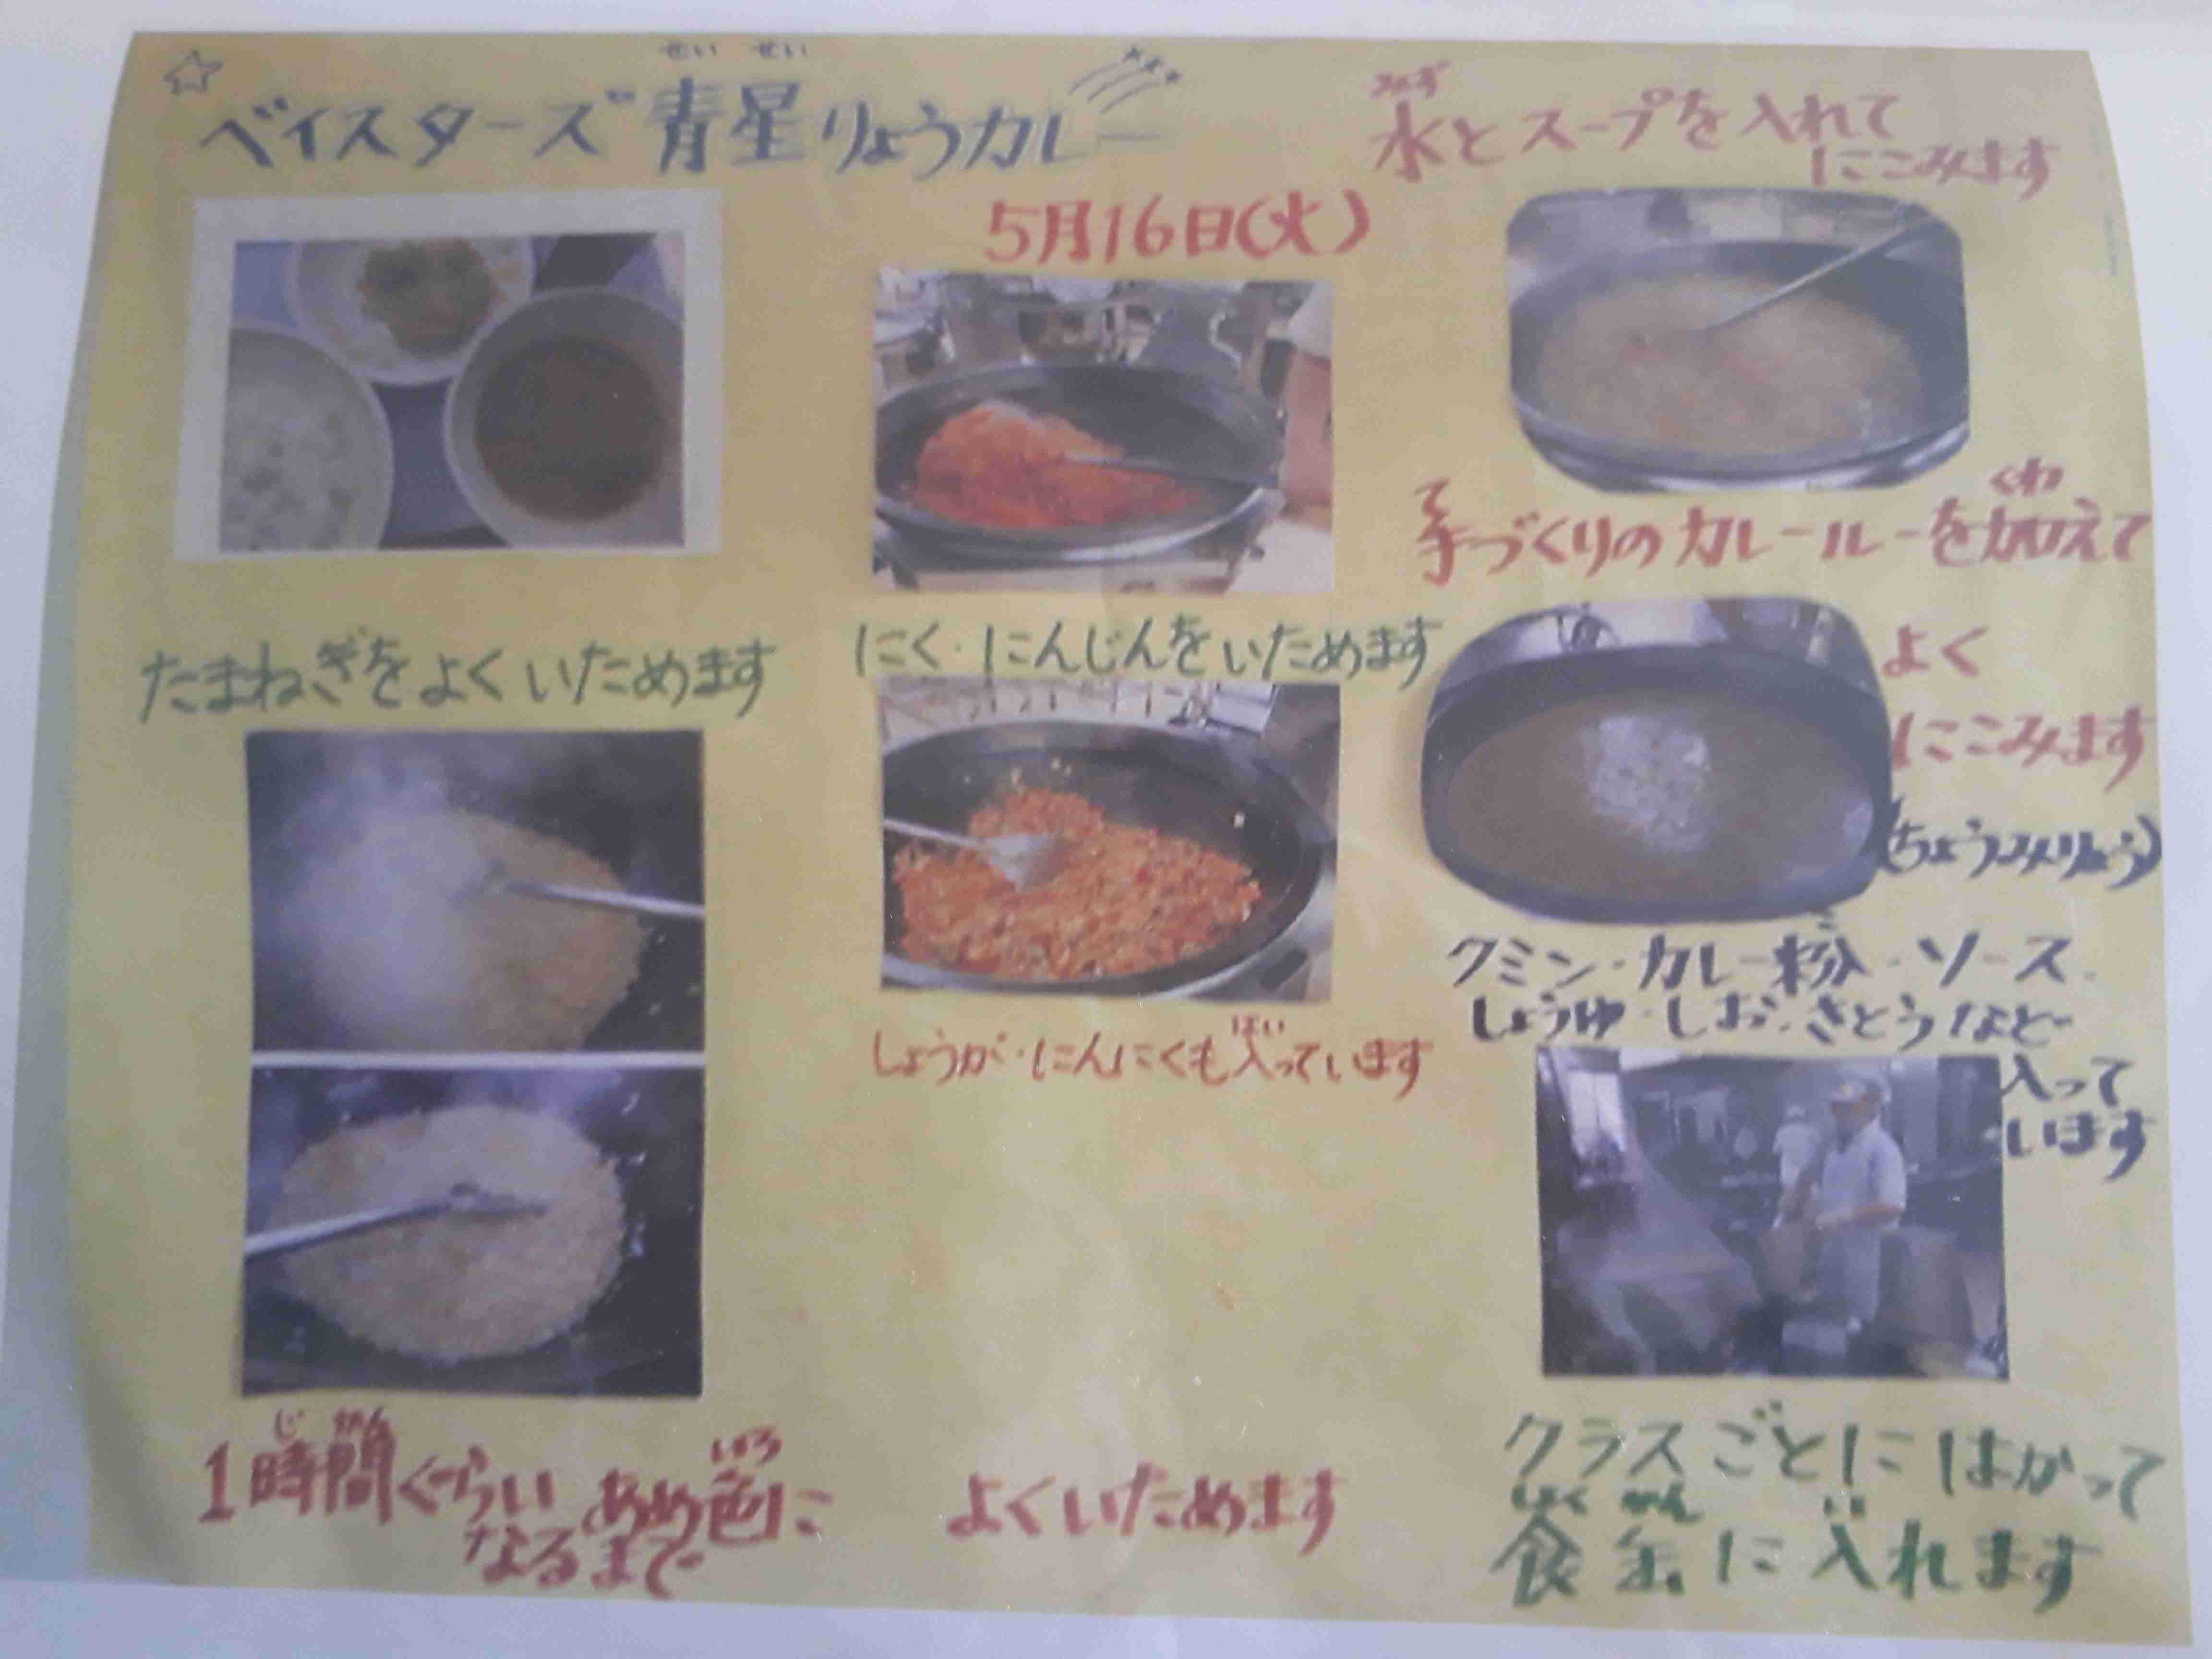 せい せい
ベイスターズ青星りょうカレー
5月16日(火)
たまねぎをよくいためます
1時間ぐらいあめ色に
じ かん
いろ
なるまで
にく・にんじんをいためます
しょうが・にんにくも入っています
はい
よくいためます
みず
水とスープを入れて
にこみます
て
くわ
手づくりのカレールーを加えて
よく
にこみます
(ちょうみりょう)
クミン・カレー粉・ソース・
しょうゆ・しお・さとうなど
入って
います
クラスごとにはかって
しょく かん い
食缶に入れます